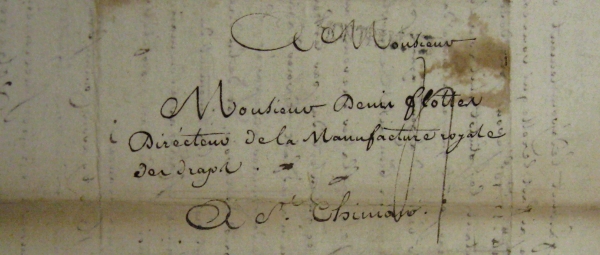 A Monsieur
Monsieur Denis fflottes
Directeur de la Manufacture royale
des draps.
A St. Chinian.